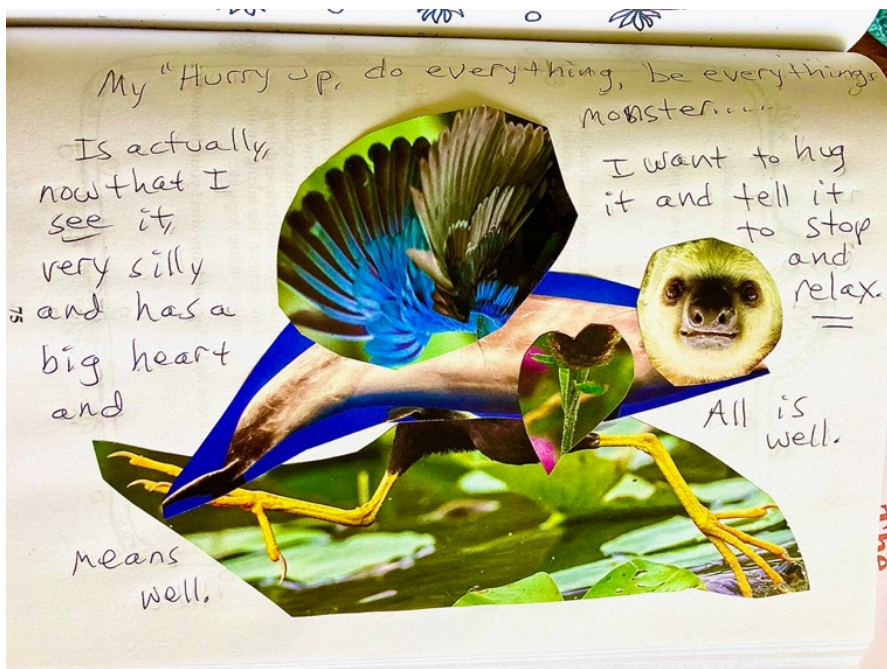 My "Hurry up, do everything, be everything"
monster.....
Is actually,
now that I
see it,
very silly
and has a
big heart
and
means
well.
I want to hug
it and tell it
to stop
and
relax.
All is
well.
75